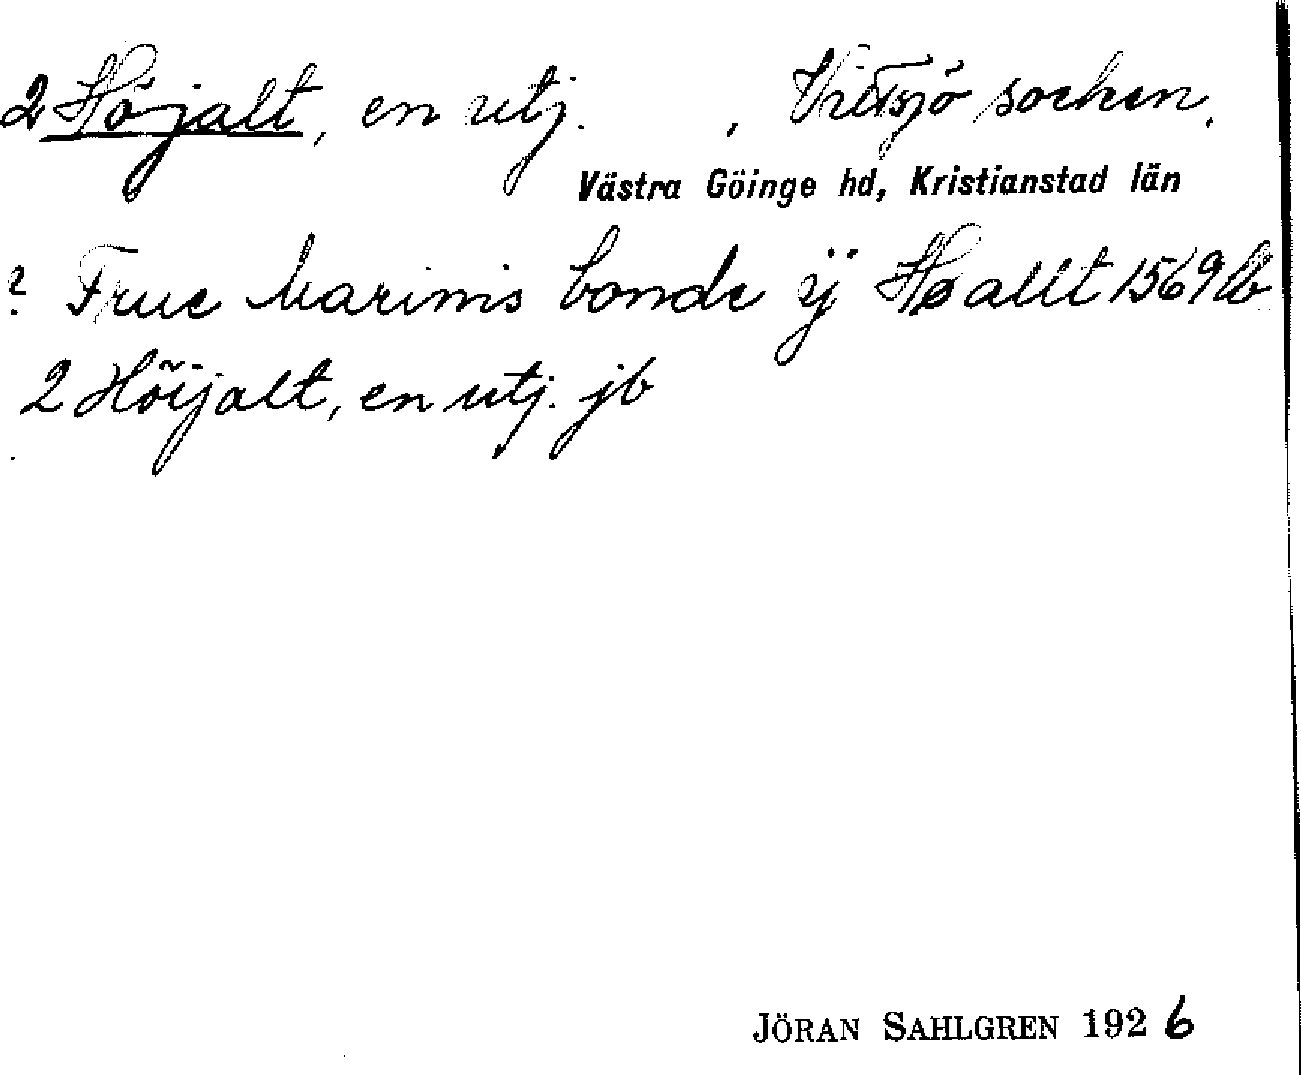 2 Höjalt, en utj. , Vittsjö socken.
Västra Göinge hd, Kristianstad län
? Frue Marinis bonde ÿ Høallt 1569 lb
2 Höijalt, en utj. jb
JÖRAN SAHLGREN 1926